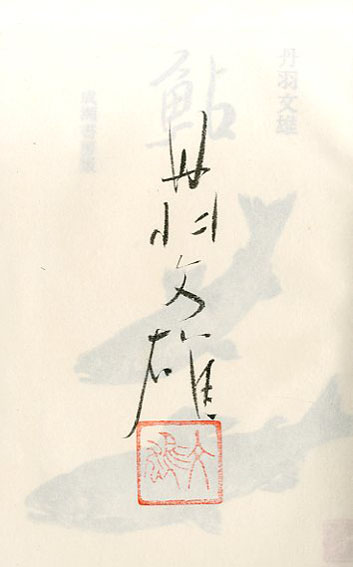 丹羽文雄
鮎
成瀬書房版
丹羽文雄
文雄